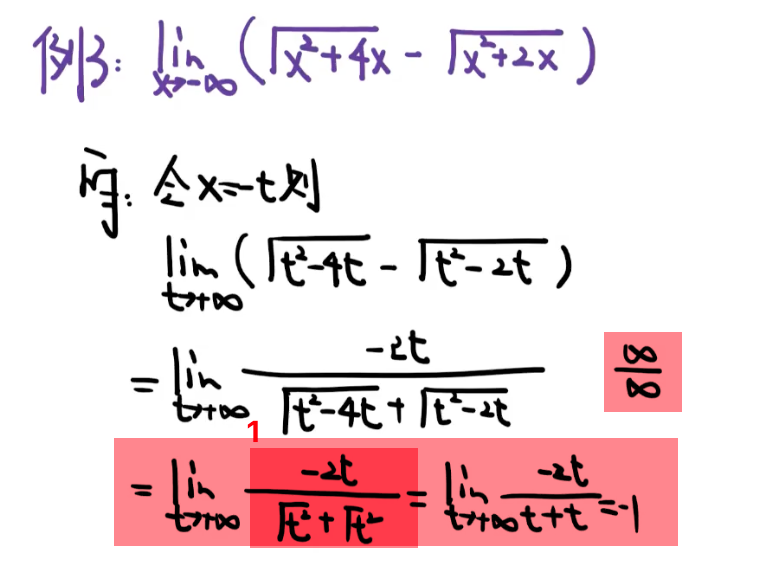 例3: lim x→-∞ (√(x²+4x) - √(x²+2x))
解: 令x=-t则
lim t→+∞ (√(t²-4t) - √(t²-2t))
= lim t→+∞ -2t/(√(t²-4t) + √(t²-2t)) ∞/∞
1
= lim t→+∞ -2t/(√t² + √t²) = lim t→+∞ -2t/(t+t) = -1